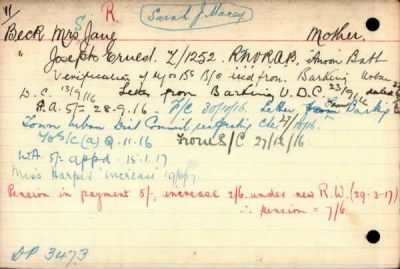 11 S R. Sarah J. Macey
Beck Mrs Jane Mother.
" Joseph Ernest. Z/1252. R.N.V.R. A.B. Anson Batt
Verification of By's Bs B/C recd from. Barking Urban
D.C. 13/9/16 Letter from Barking U.D.C 23/9/16 dated
P.A. 5/= 28.9.16. F/C 30/10/16. Letter from Barking
Town Urban Dist Council 27/10/16.
To S/C (a) 9.11.16 From S/C 27/12/16
WA. 5/- appd. 15.1.17
Miss Harper increase 19/6/17.
Pension in payment 5/-, increase 2/6. under new R.W. (29-3-17)
∴ pension = 7/6.
DP 3473